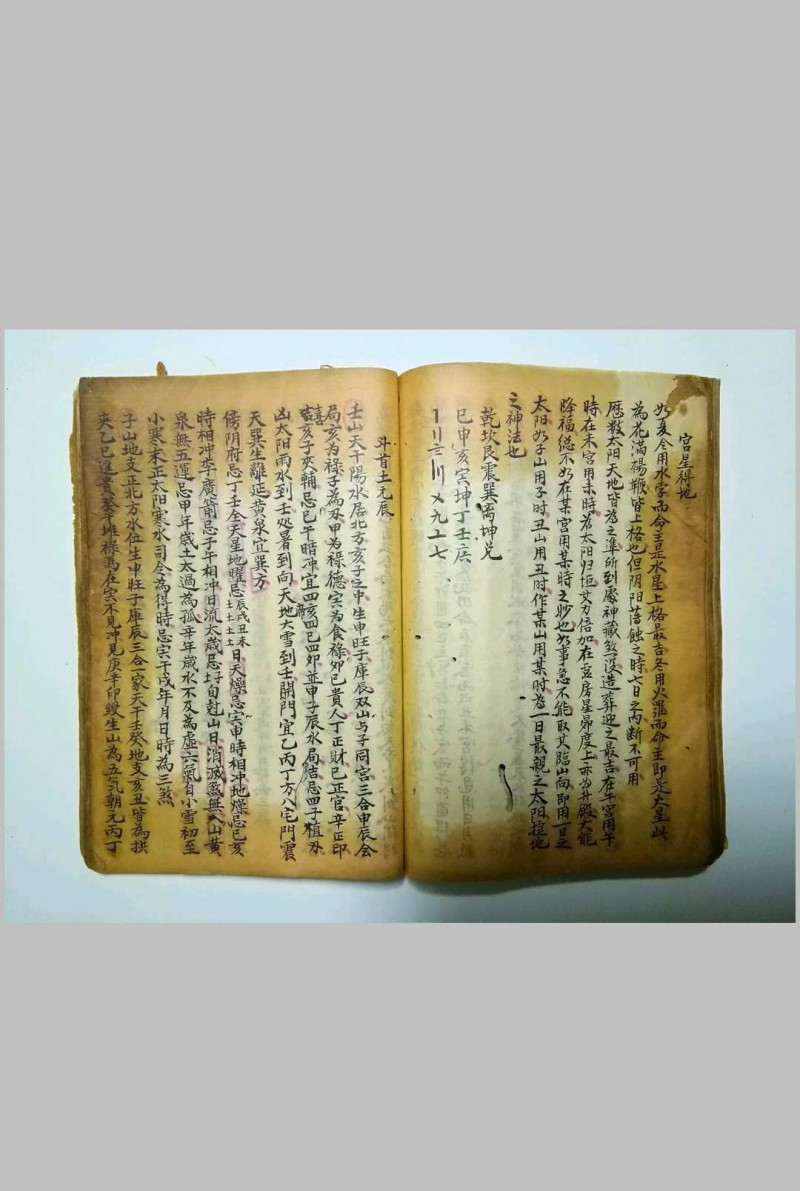 宮星得地
如夏令用水孛而命主是水星上格最吉冬用火羅而命主即是火星此
為花滿楊鞭皆上格也但阴阳薄蝕之時七日之内断不可用
歷数太阳天地皆為之準所到處神藏煞没造葬迎之最吉在午宮用午
時在未宮用未時若太阳归垣其力倍加在虚房星昴度上亦為升殿大能
降福總不如在某宮用某時之妙也如事急不能取其臨山向即用一日之
太阳如子山用子时丑山用丑时作某山用某时為一日最親之太阳
之神法也
乾坎艮震巽离坤兑
巳申亥寅坤丁壬庚
〡〢〣〤九七
斗首土元辰
壬山天干陽水居北方亥子之中生申旺子庫辰双山与子同宮三合申辰会
局亥為禄子為刃甲為禄德寅為食禄卯巳貴人丁正財己正官辛正印
喜亥子夾輔忌巳午暗冲宜四亥四巳四卯並申子辰水局忌四子植刃
凶太阳雨水到壬処暑到向天地大雪到壬開門宜乙丙丁方八宅門震
天巽生離延黄泉宜巽方
傍阴府忌丁壬全天星地曜忌辰戌丑未土土土土日天燥忌寅申時相冲地燥忌巳亥
時相冲李廣箭忌子午相冲日流太歲忌子自乾山日消滅煞無入山黄
泉無五運忌甲年歲土太過為孤辛年歲水不及為虚六氣自小雪初至
小寒末正太阳寒水司令為得時忌寅午戌年月日時為三煞
子山地支正北方水位生申旺子庫辰三合一家天干壬癸地支亥丑皆為拱
夾乙巳進貴癸堆禄馬在寅不見冲見庚辛印綬生山為五氣朝元丙丁